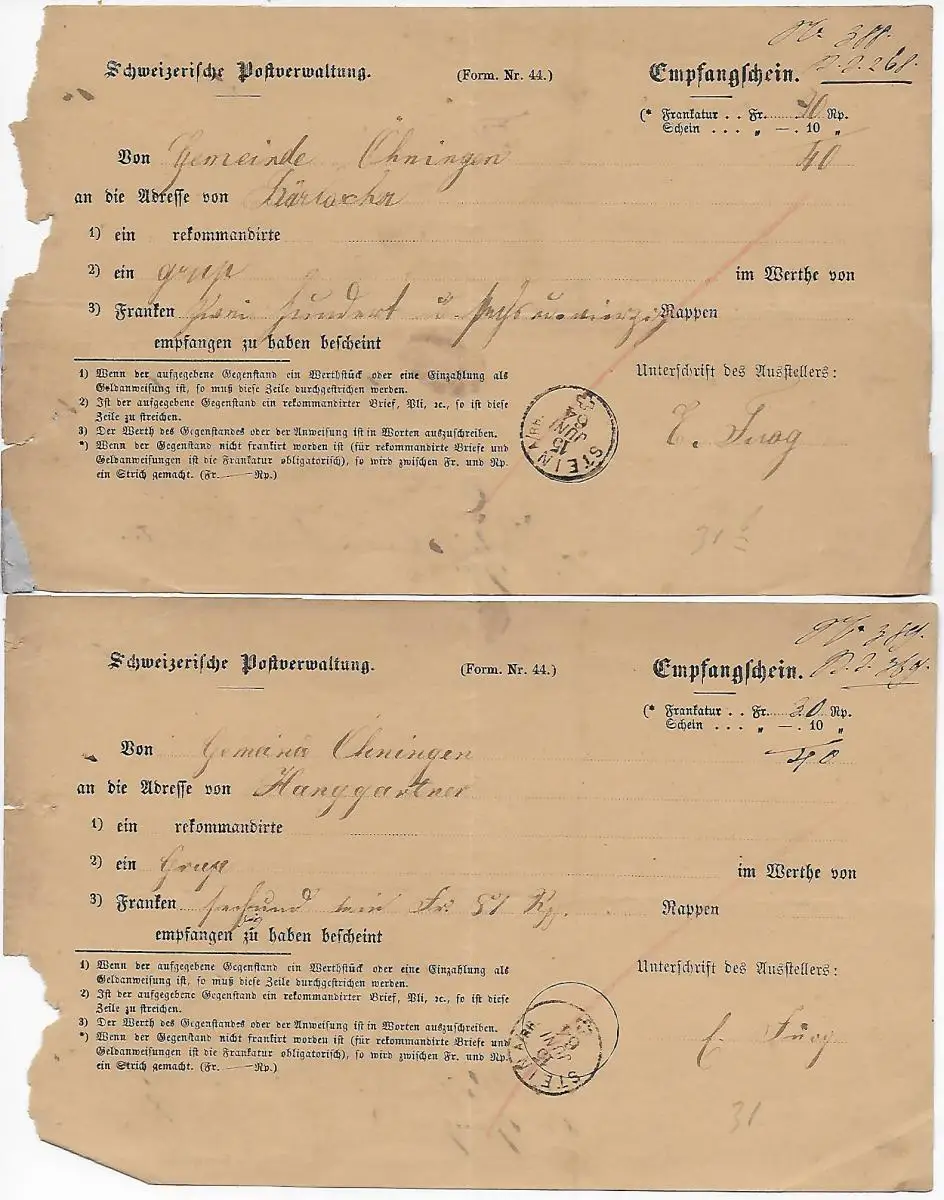 No. 388.
Schweizerische Postverwaltung. (Form. Nr. 44.) Empfangschein.
(* Frankatur . . Fr. 30 Rp.
Schein . . . „ —. 10 „
40
Von Gemeinde Öhningen
an die Adresse von
1) ein rekommandirte
2) ein grup im Werthe von
3) Franken zwei hundert u. sechs u. vierzig Rappen
empfangen zu haben bescheint
1) Wenn der aufgegebene Gegenstand ein Werthstück oder eine Einzahlung als
Geldanweisung ist, so muß diese Zeile durchgestrichen werden.
2) Ist der aufgegebene Gegenstand ein rekommandirter Brief, Pli, ꝛc., so ist diese
Zeile zu streichen.
3) Der Werth des Gegenstandes oder der Anweisung ist in Worten auszuschreiben.
*) Wenn der Gegenstand nicht frankirt worden ist (für rekommandirte Briefe und
Geldanweisungen ist die Frankatur obligatorisch), so wird zwischen Fr. und Rp.
ein Strich gemacht. (Fr. — Rp.)
Unterschrift des Ausstellers:
E. Fuog
STEIN A/RH.
15 JUNI
31
No. 389.
Schweizerische Postverwaltung. (Form. Nr. 44.) Empfangschein.
(* Frankatur . . Fr. 30 Rp.
Schein . . . „ —. 10 „
40
Von Gemeinde Öhningen
an die Adresse von Hanggartner
1) ein rekommandirte
2) ein Grup im Werthe von
3) Franken Fr. 81 Rp. Rappen
empfangen zu haben bescheint
1) Wenn der aufgegebene Gegenstand ein Werthstück oder eine Einzahlung als
Geldanweisung ist, so muß diese Zeile durchgestrichen werden.
2) Ist der aufgegebene Gegenstand ein rekommandirter Brief, Pli, ꝛc., so ist diese
Zeile zu streichen.
3) Der Werth des Gegenstandes oder der Anweisung ist in Worten auszuschreiben.
*) Wenn der Gegenstand nicht frankirt worden ist (für rekommandirte Briefe und
Geldanweisungen ist die Frankatur obligatorisch), so wird zwischen Fr. und Rp.
ein Strich gemacht. (Fr. — Rp.)
Unterschrift des Ausstellers:
E. Fuog
STEIN A/RH.
15 JUNI
31